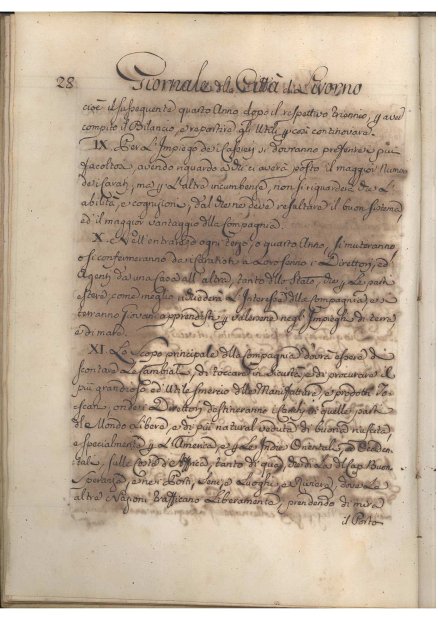 28 Giornale della Città di Livorno
cioè il susseguente quarto Anno, dopo il respettivo triennio, p. aver
compito il Bilancio, e repartire gli Utili, e così continovare.
IX. Per l'Impiego dei Cassieri si dovranno preferire i più
facoltosi, avendo riguardo a chi ci averà posto il maggior Numero
dei Carati, ma p. l'altre incumbenze, non si riguarderà che l'
abilità, e cognizioni, dal che ne deve resultare il buon sistema
ed il maggior vantaggio della Compagnia.
X. Nell'entrare d'ogni terzo, o quarto Anno, si muteranno
o si confermeranno dai Caratisti a Loro senno i Direttori, ed
Agenti da una face all'altra, tanto dello Stato, che p. le parti
estere, come meglio richiederà l'Interesse della Compagnia, e si
terranno Giovani apprendisti p. valersene negl'Impieghi di terra
e di mare.
XI. Lo Scopo principale della Compagnia dovrà essere di
scontare le Cambiali, di toccare in Società, e di procurare il
più grandioso, ed Utile smercio delle Manifatture, e prodotti To-
scani, onde i Direttori destineranno i Carichi di quelle, parti
del Mondo Libere, e di più natural veduta di buona riuscita,
e specialmente p. l'America, e p. le Indie Orientali, e Occiden-
tali, sulle Coste d'Affrica, tanto di qua, che di là del Cap Buona
Speranza, e nei Porti, Seni, e Luoghi, e Riviere, dove le
altre Nazioni trafficano Liberamente, prendendo di mira
il Porto